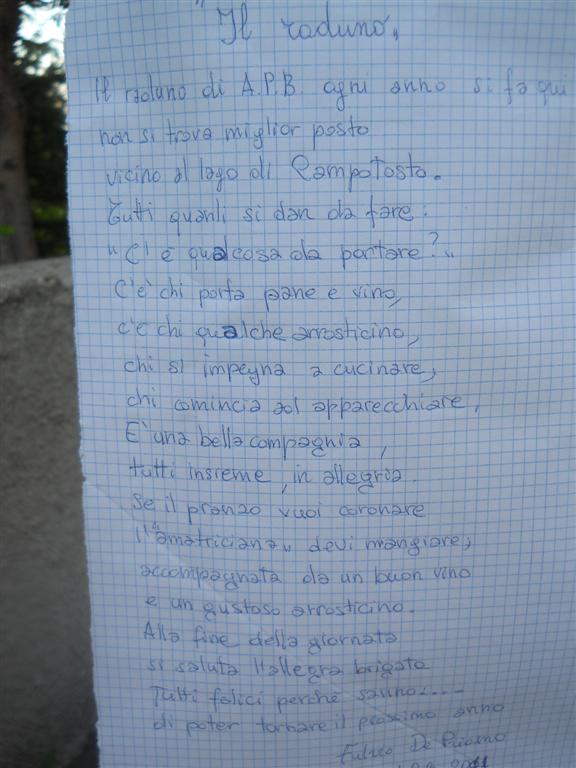 "Il raduno"
Il raduno di A.P.B ogni anno si fa qui
non si trova miglior posto
vicino al lago di Campotosto.
Tutti quanti si dan da fare:
"C'è qualcosa da portare?"
C'è chi porta pane e vino,
c'è chi qualche arrosticino,
chi si impegna a cucinare,
chi comincia ad apparecchiare,
E' una bella compagnia,
tutti insieme, in allegria.
Se il pranzo vuoi coronare
l'"amatriciana" devi mangiare,
accompagnata da un buon vino
e un gustoso arrosticino.
Alla fine della giornata
si saluta l'allegra brigata
Tutti felici perché sanno.....
di poter tornare il prossimo anno
De
2011